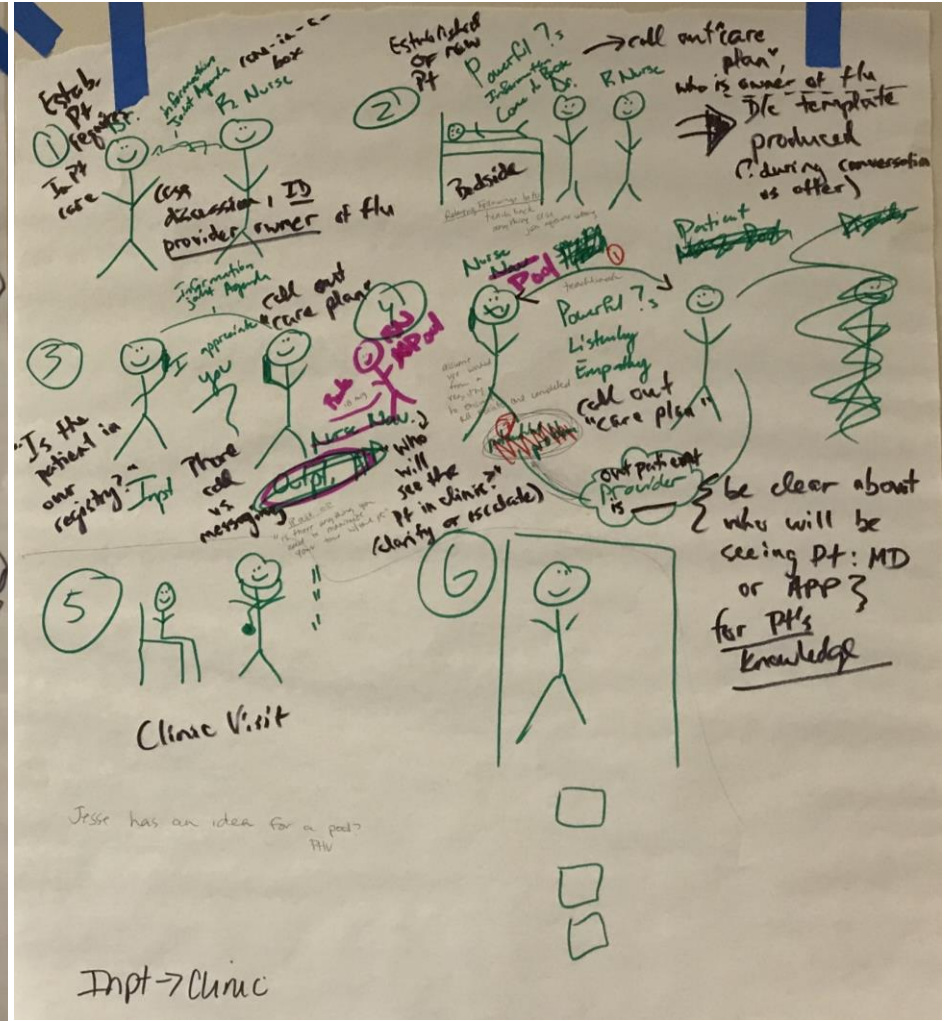 ①
Estab.
Pt
requires
InPt
care
Dr.
information
Joint Agenda
core-in-a-
box
R Nurse
Case
discussion, ID
provider owner of flu
②
Established
or new
Pt
Powerful ?s
Information
Dr.
R Nurse
Bedside
teach back
anything else
→ call out "care
plan",
who is owner of flu
D/c template
produced
(? during conversation
vs after)
③
Information
Joint Agenda
call out
"care plan"
I appreciate
you
"Is the
patient in
our
registry?"
Inpt
Phone
call
vs
messaging
④
RN
Pool
Nurse Nav.
outpt.
"who
will
see the
Pt in clinic?"
(clarify or escalate)
Nurse
Pool
①
teachback
Patient
Powerful ?s
Listening
Empathy
call out
"care plan"
②
outpatient
provider
is ____
be clear about
who will be
seeing pt: MD
or APP }
for Pt's
knowledge
⑤
Clinic Visit
⑥
Jesse has an idea for a pool?
Inpt → Clinic